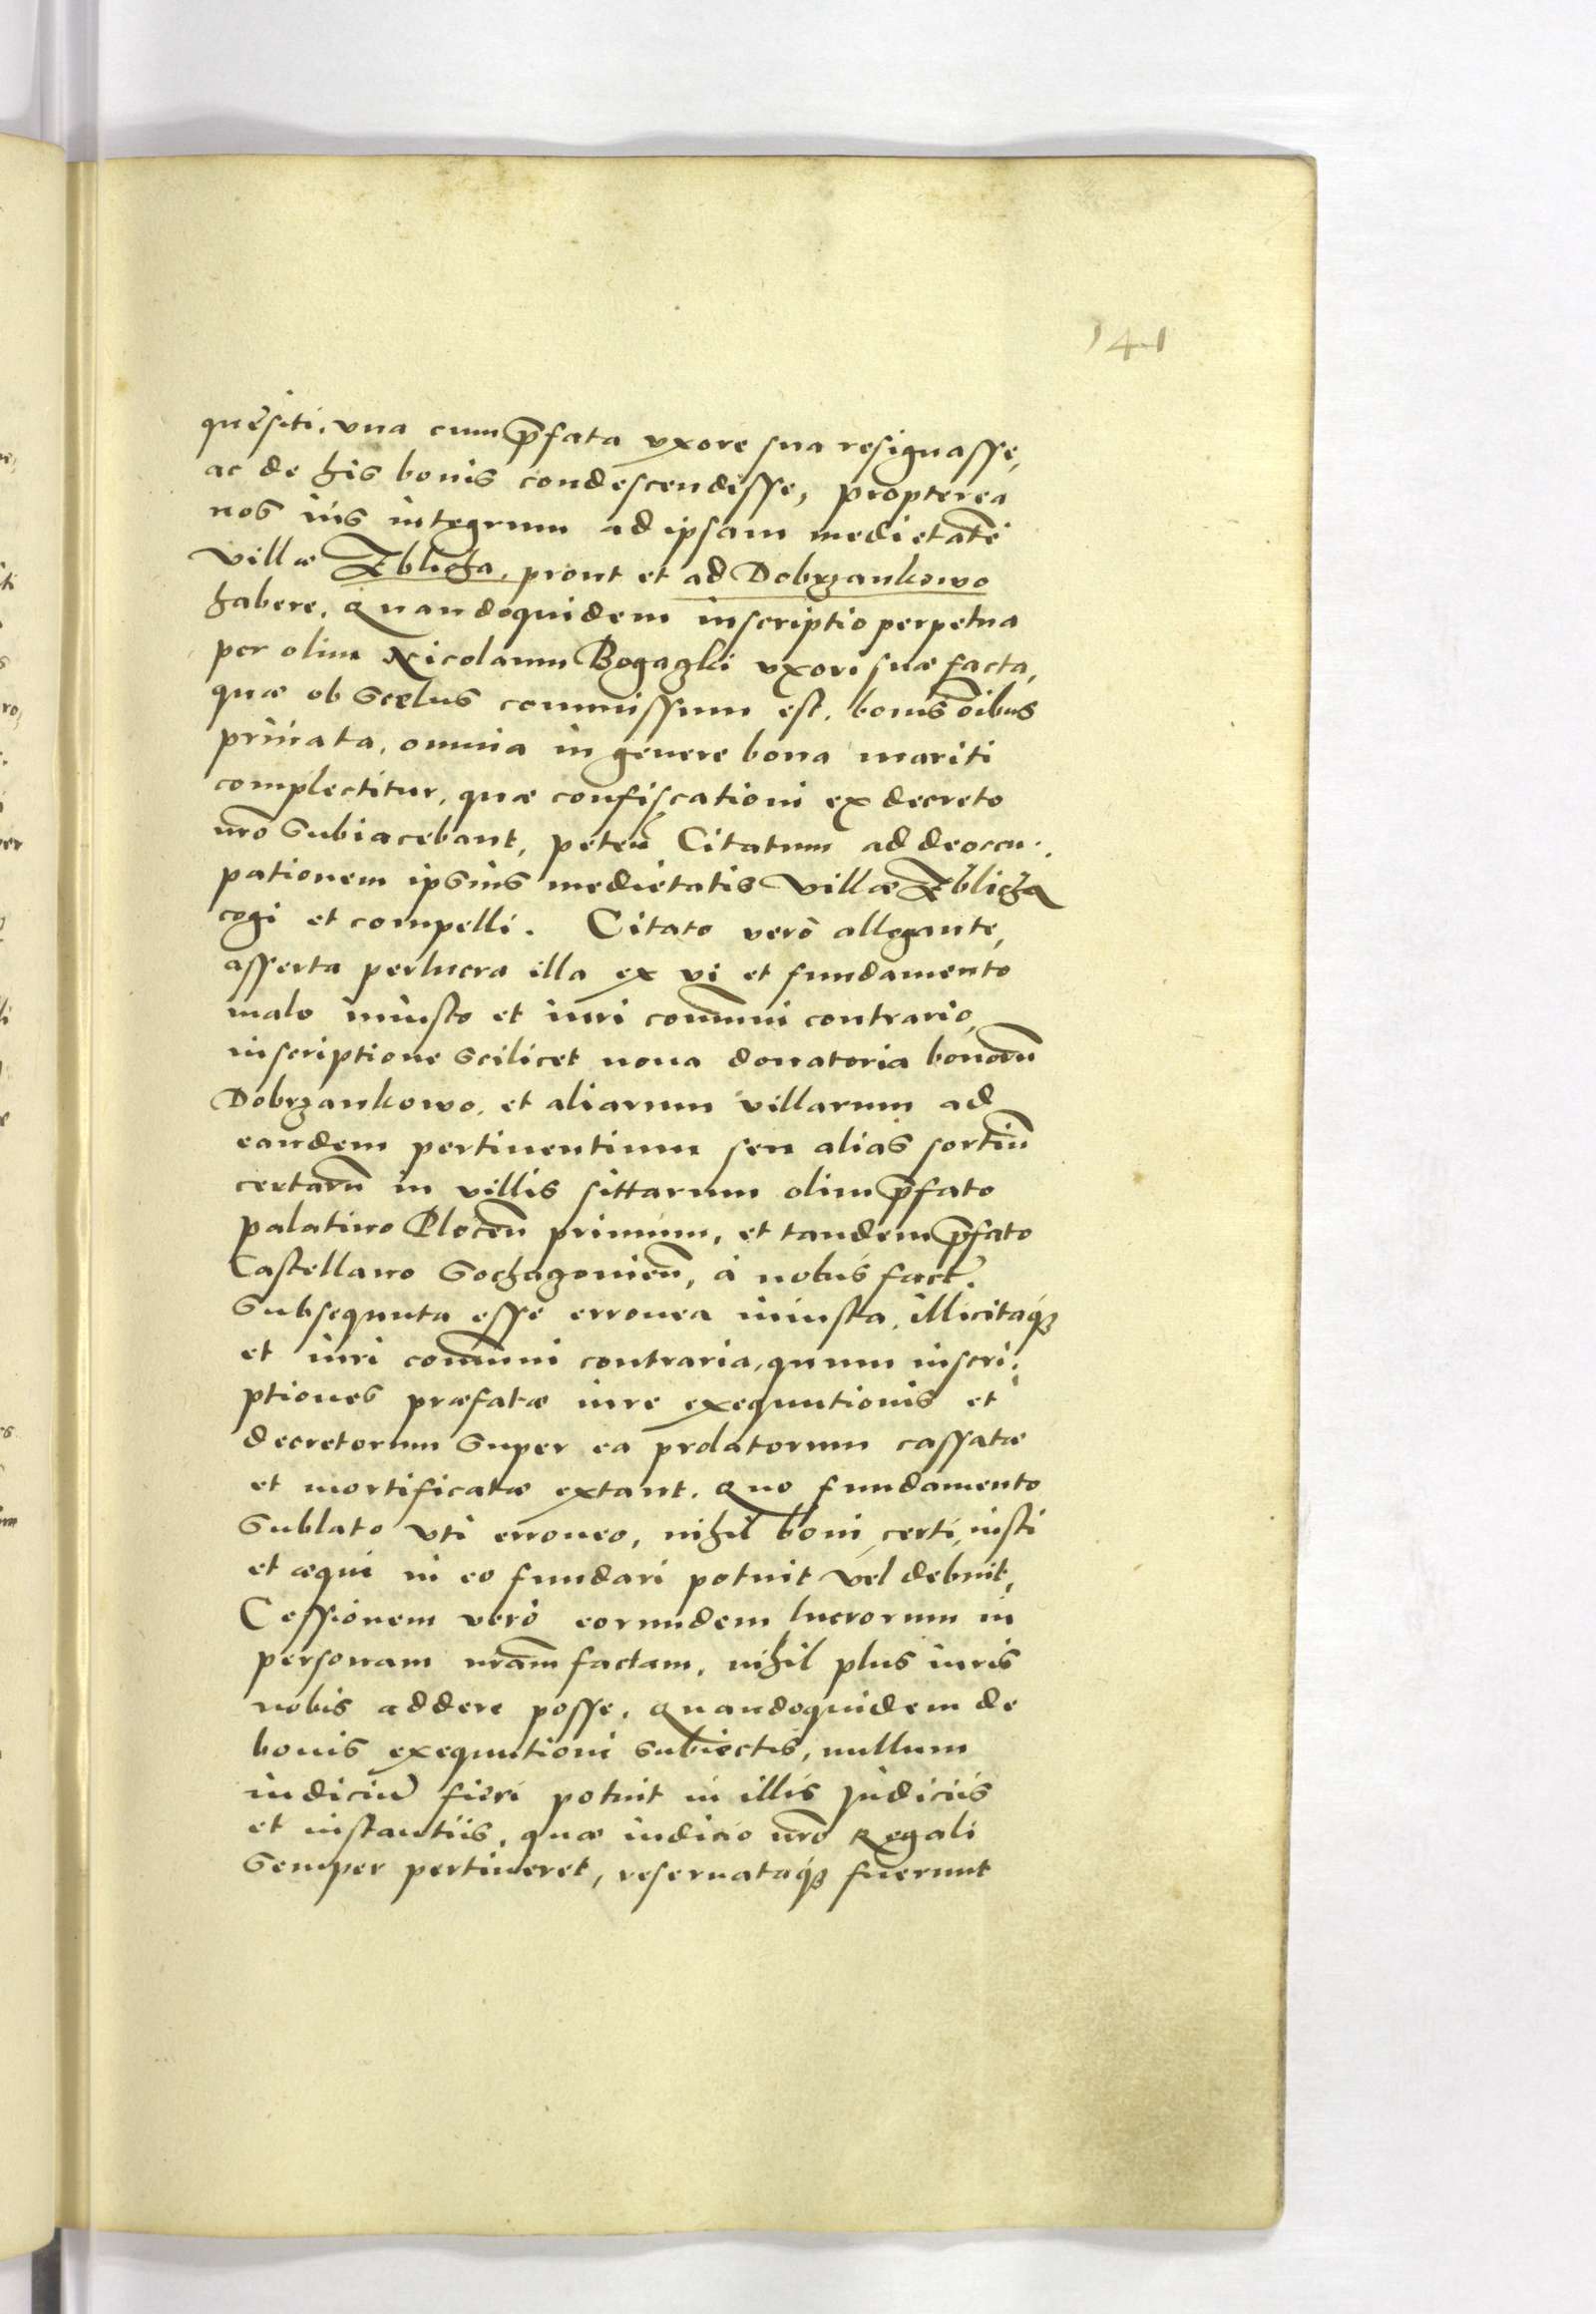 141
quesiti, vna cum p̄fata vxore sua resignasse,
ac de his bonis condescendisse, propterea
nos ius integrum ad ipsam medietatē
villæ Zblicha, prout et ad Dobrzankowo
habere. Quandoquidem inscriptio perpetua
per olim Nicolaum Bogaczki vxori suæ facta,
quæ ob scelus commissum est, bonis oībus
priuata, omnia in genere bona mariti
complectitur, quæ confiscationi ex decreto
nr̄o subiacebant, peteň Citatum ad deoccu-
pationem ipsius medietatis villæ Zblicha
cogi et compelli. Citato verò allegante,
asserta perlucra illa ex vi et fundamento
malo iniusto et iuri cōmuni contrario,
inscriptione scilicet noua donatoria bonoru̅
Dobrzankowo, et aliarum villarum ad
eandem pertinentium seu alias sortiū
certaru̅ in villis sittarum olim p̄fato
palatino Plocen̄ primùm, et tandem p̄fato
Castellano Sochazouien̄, à nobis fact.
Subsequuta esse erronea iniusta, illicitaq́ꝫ
et iuri cōmuni contraria, quum inscri-
ptiones præfatæ iure exequutionis et
decretorum super ea prolatorum cassatæ
et mortificatæ extant. Quo fundamento
sublato vti erroneo, nihil boni, certi, iusti
et æqui in eo fundari potuit vel debuit,
Cessionem verò eorundem lucrorum in
personam nr̄am factam, nihil plus iuris
nobis addere posse. Quandoquidem de
bonis exequutioni subiectis, nullum
iudiciū fieri potuit in illis Judiciis
et instantiis, quæ iudicio nr̄o Regali
semper pertineret, reseruataq́ꝫ fuerunt